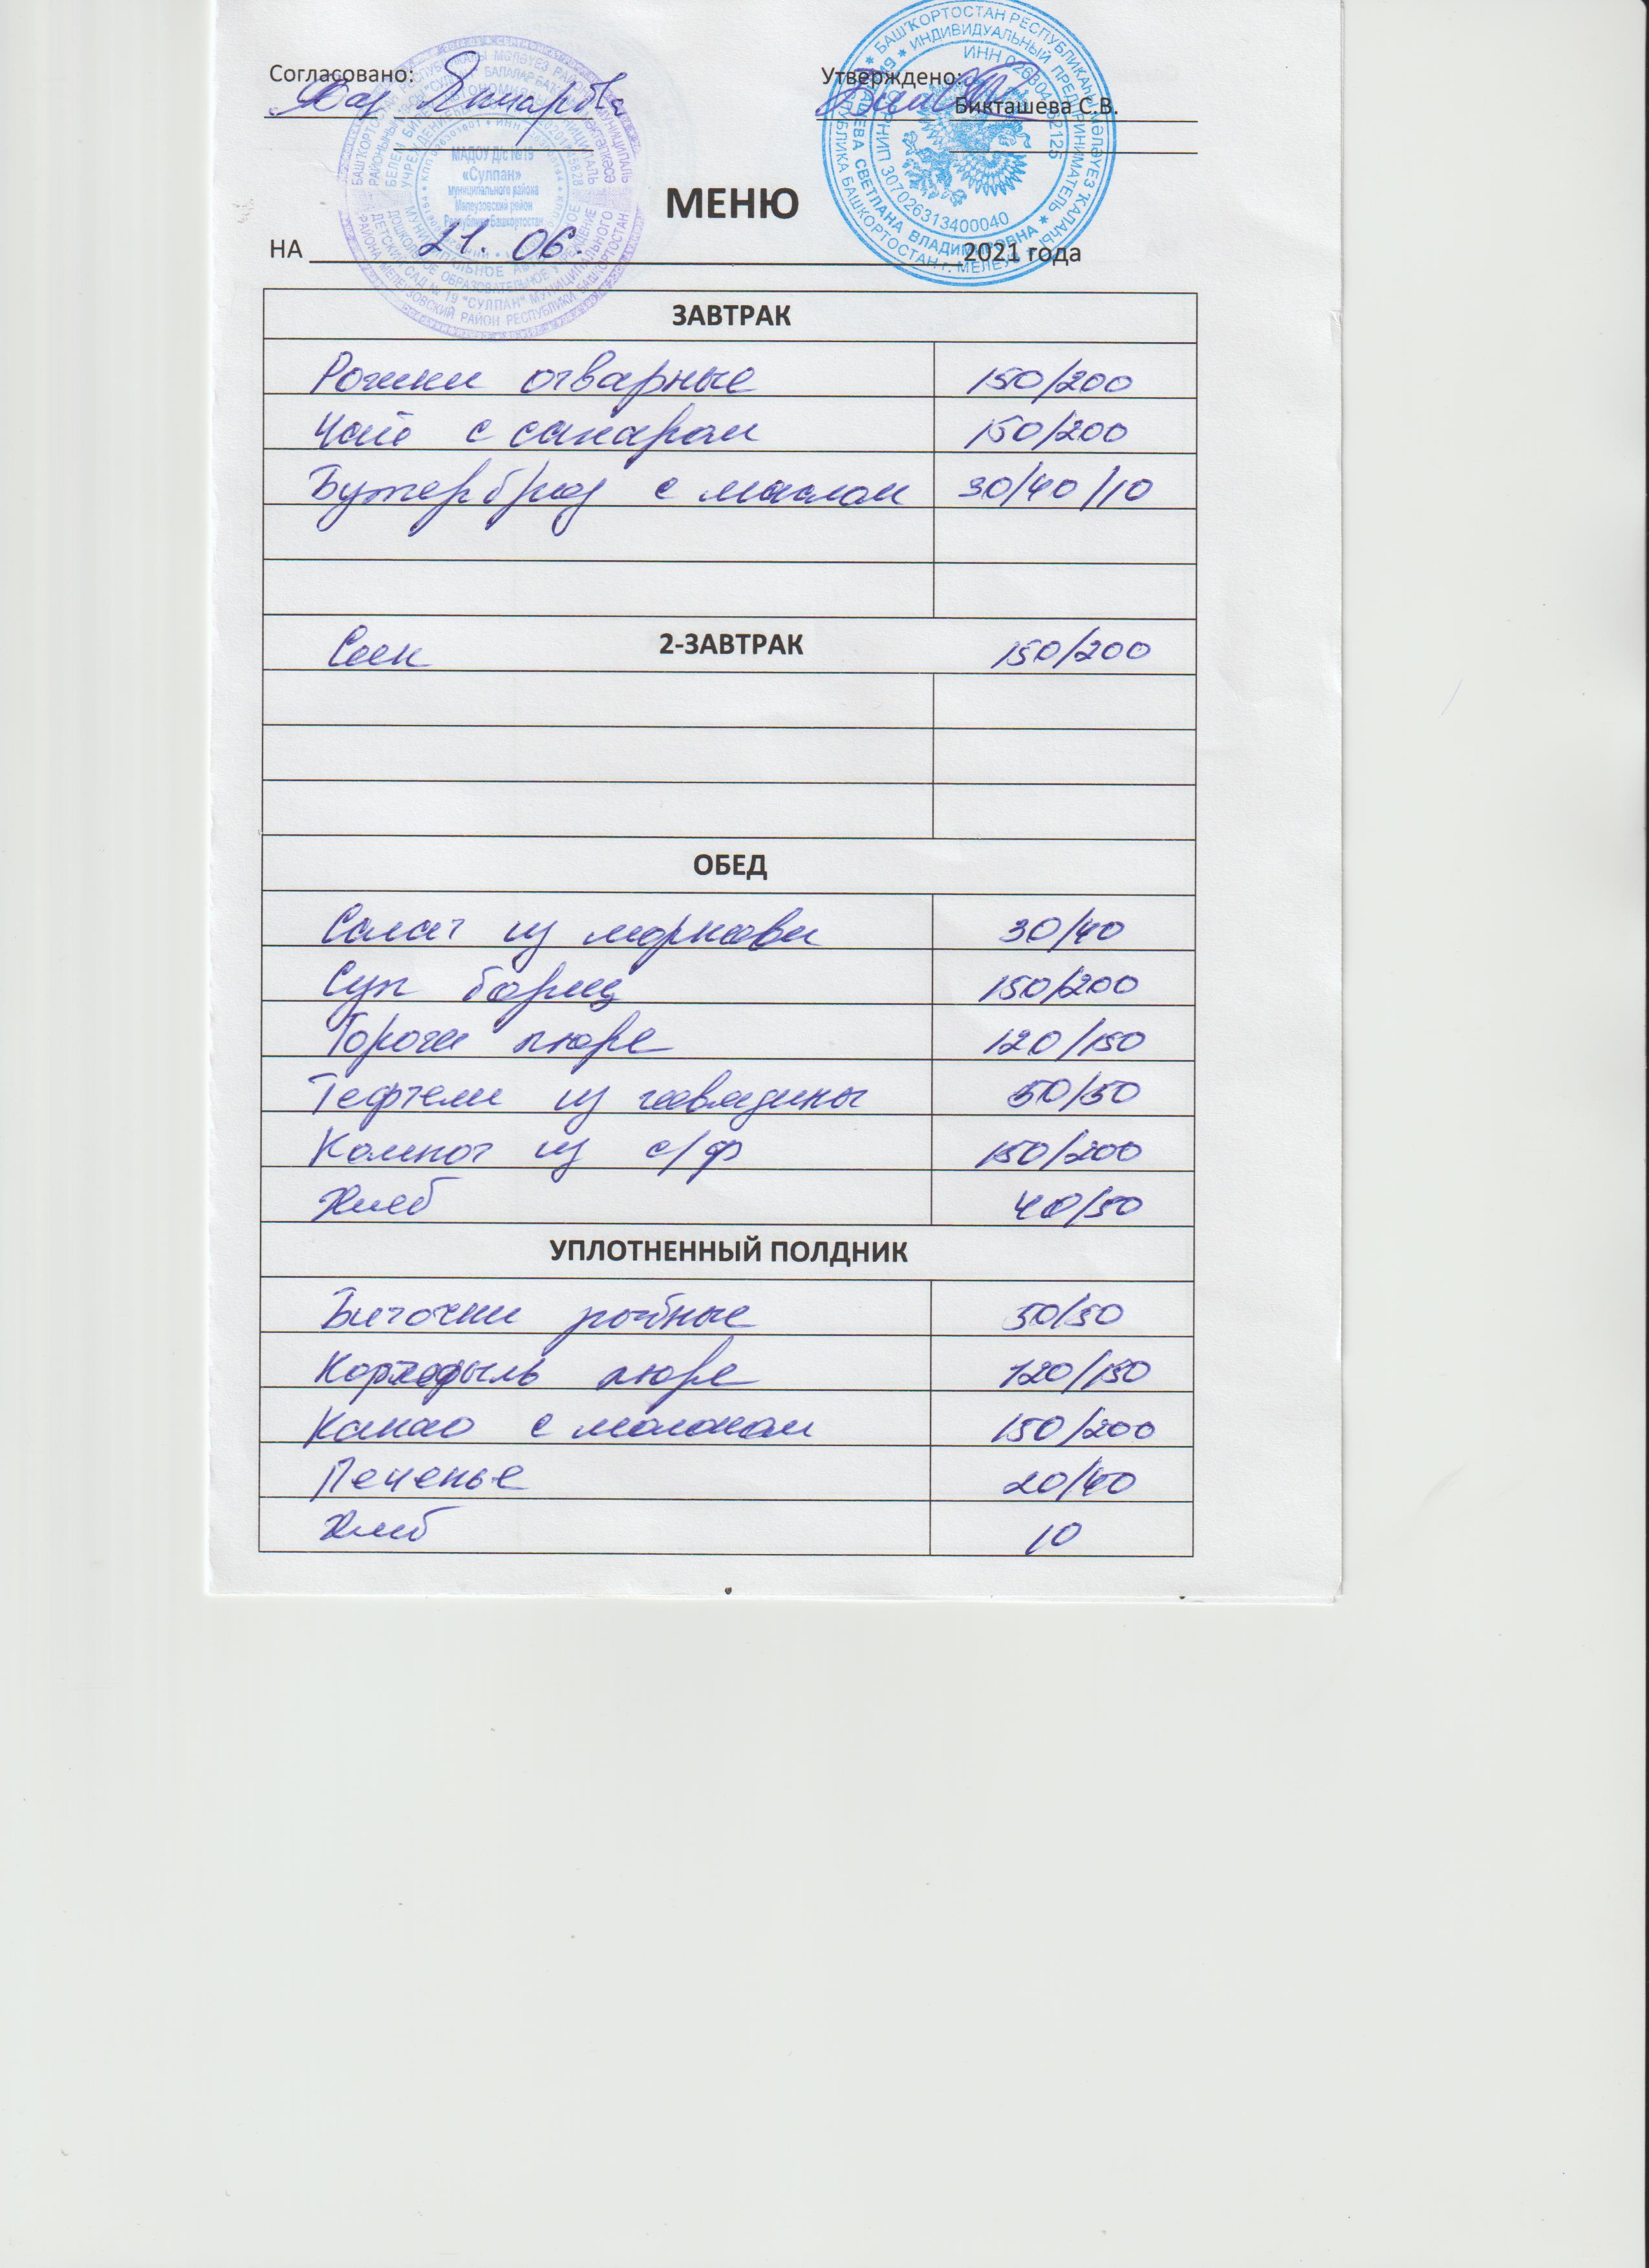 Согласовано: Утверждено:
Бикташева С.В.
МАДОУ Д/С №19
«Сулпан»
муниципального района
Мелеузовский район
Республики Башкортостан
МЕНЮ
НА 21. 06. 2021 года
ЗАВТРАК
Рожки отварные 150/200
Чай с сахаром 150/200
Бутерброд с маслом 30/40/10
Сок 2-ЗАВТРАК 150/200
ОБЕД
Салат из моркови 30/40
Суп борщ 150/200
Горох пюре 120/150
Тефтели из говядины 50/50
Компот из с/ф 150/200
Хлеб 40/50
УПЛОТНЕННЫЙ ПОЛДНИК
Биточки рыбные 50/50
Картофель пюре 120/150
Какао с молоком 150/200
Печенье 20/40
Хлеб 10